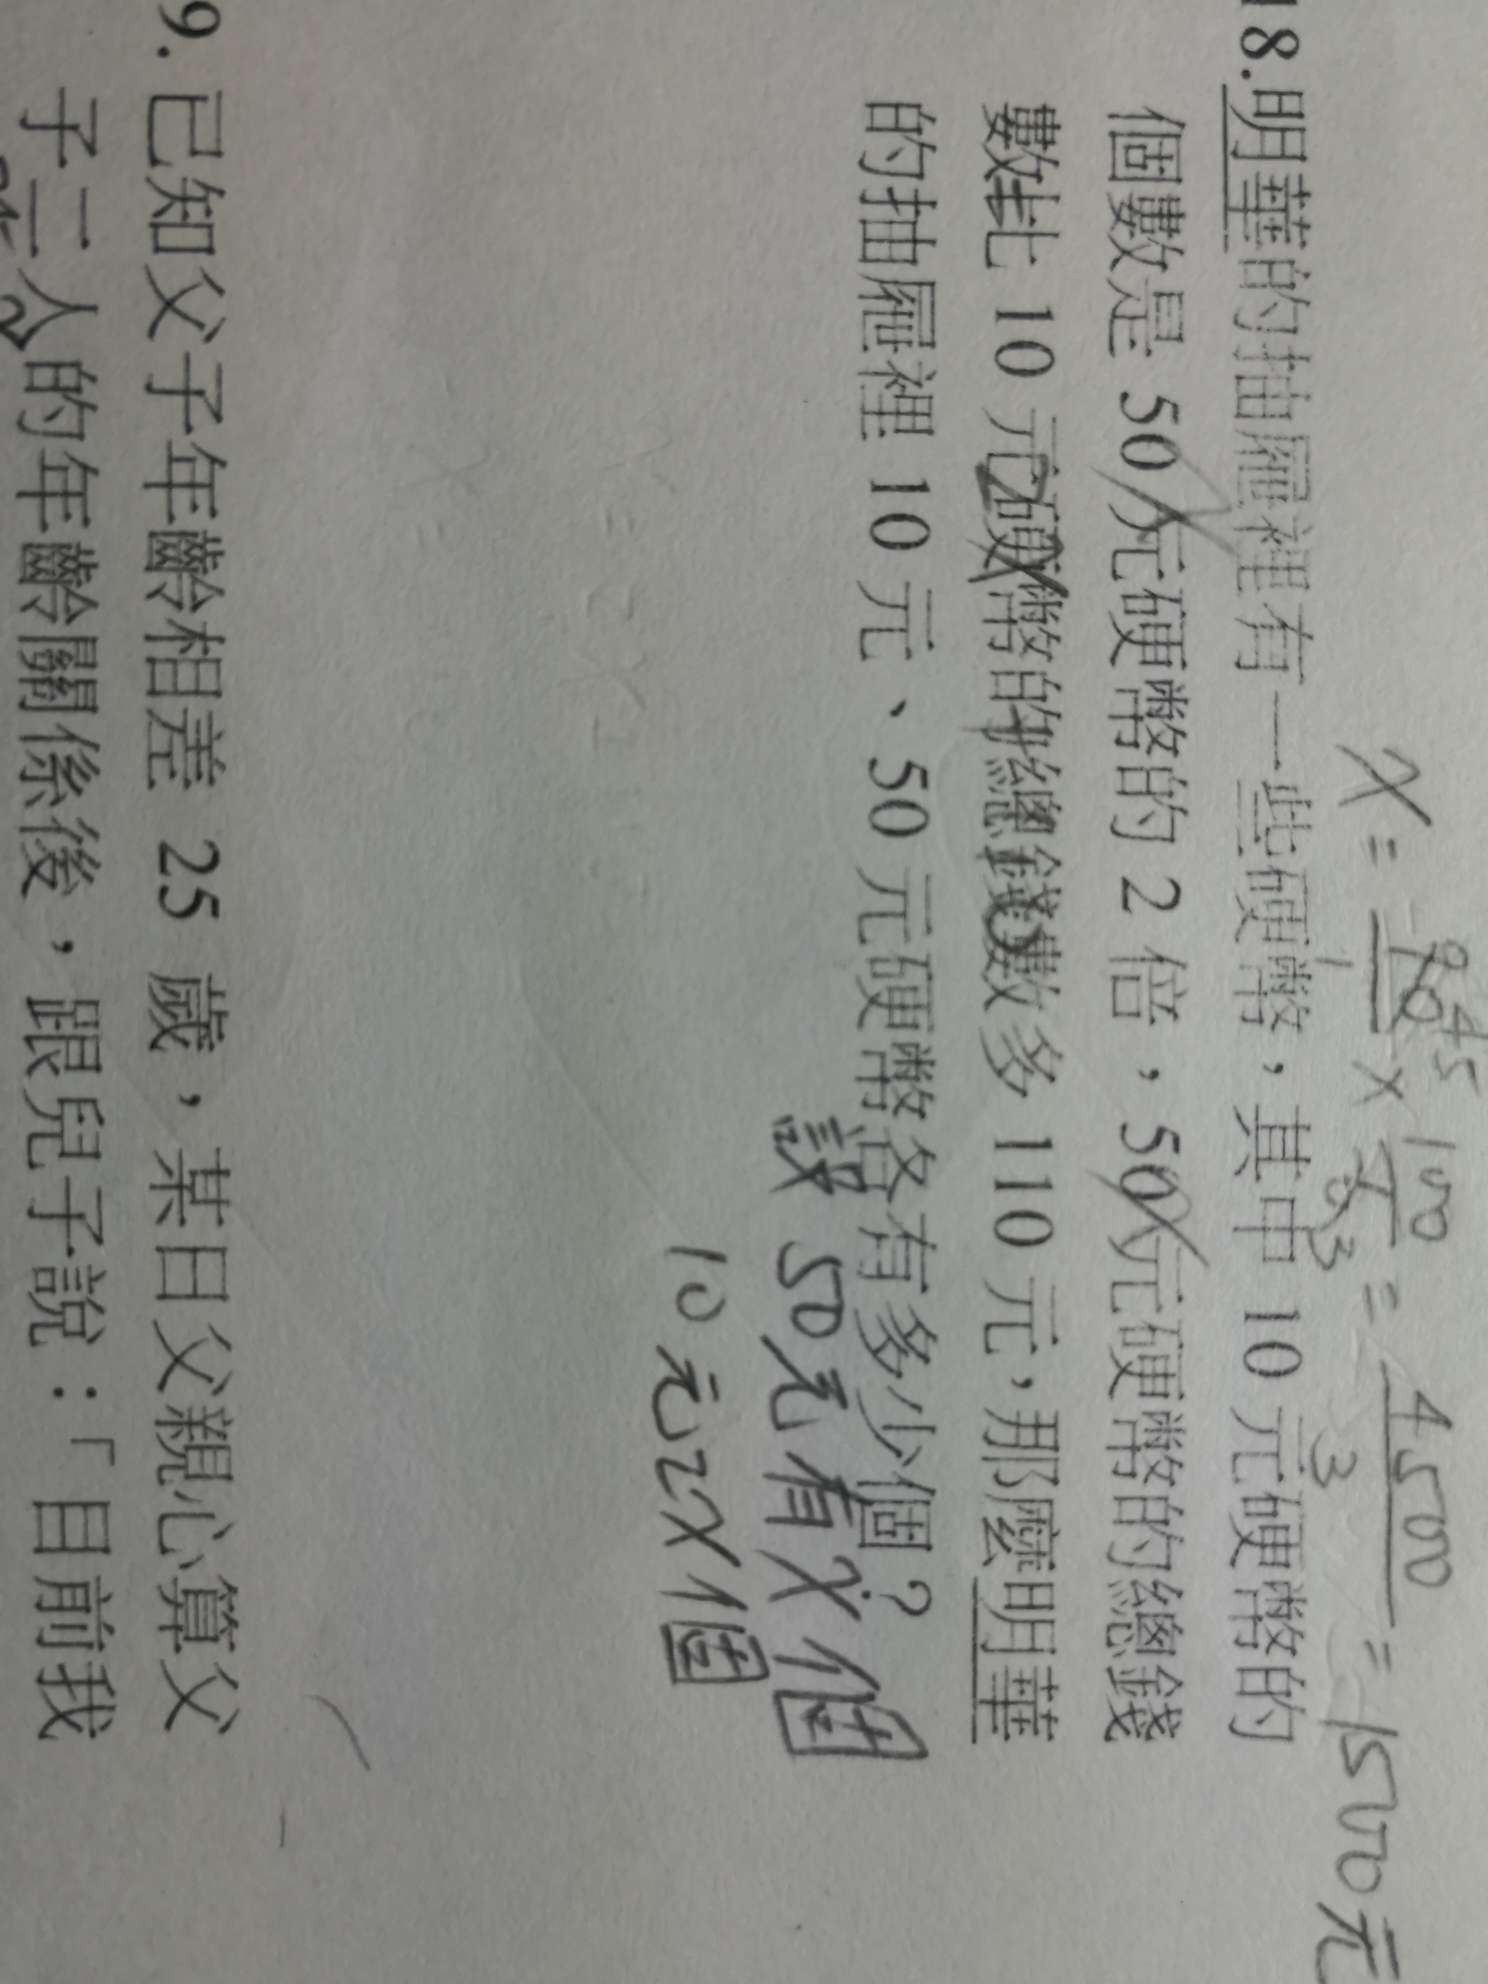 x = 90 45 1 × 100 6 3 = 4500 3 = 1500元
18.明華的抽屜裡有一些硬幣，其中 10 元硬幣的
個數是 50 元硬幣的 2 倍，50 元硬幣的總錢
數比 10 元硬幣的總錢數多 110 元，那麼明華
的抽屜裡 10 元、50 元硬幣各有多少個？
設 50元有x個
10元2x個
9.已知父子年齡相差 25 歲，某日父親心算父
子二人的年齡關係後，跟兒子說：「目前我